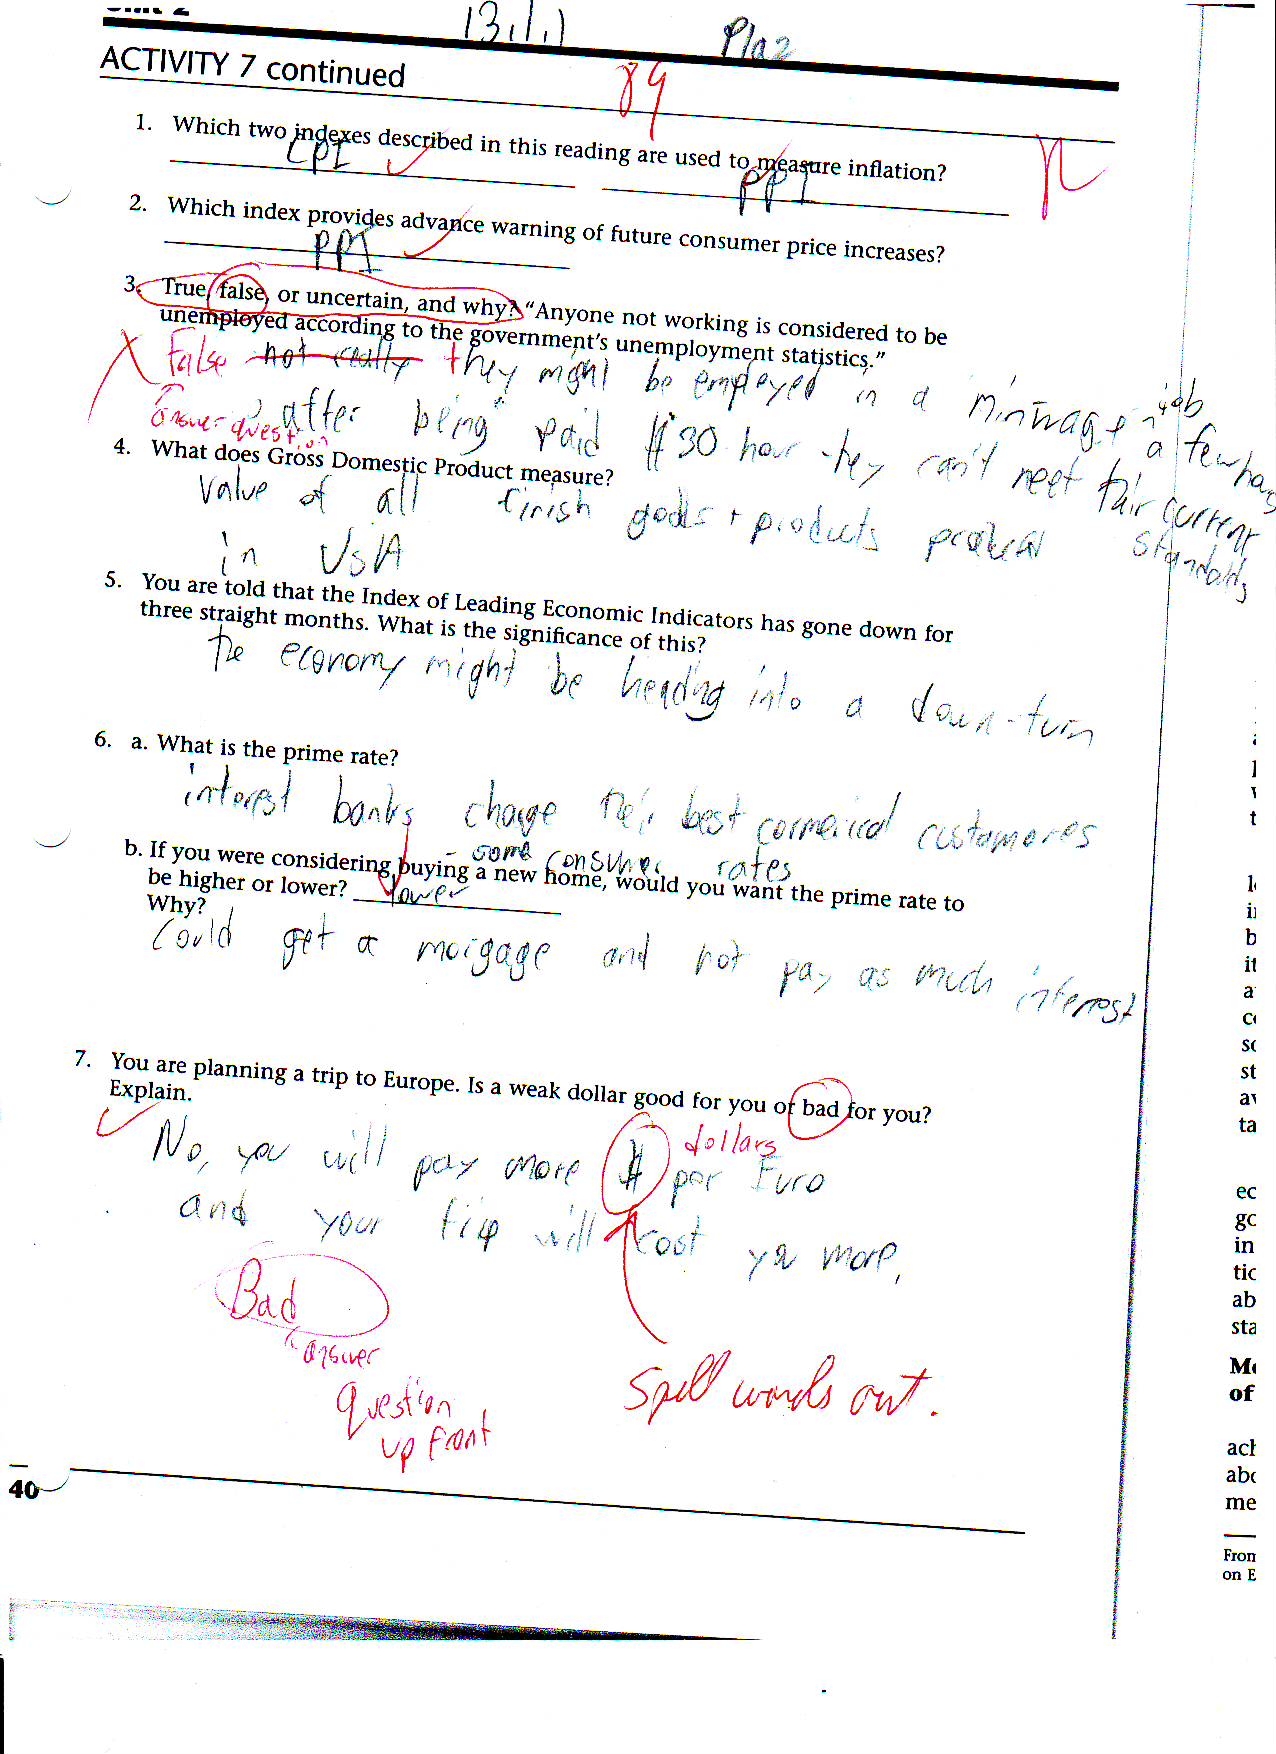 13.1.1
ACTIVITY 7 continued
89
1. Which two indexes described in this reading are used to measure inflation?
CPI PPI
2. Which index provides advance warning of future consumer price increases?
PPI
3. True, false, or uncertain, and why? “Anyone not working is considered to be
unemployed according to the government's unemployment statistics.”
False not really they might be employed in a minwage job
answer question after being paid $30 hour they can't meet fair current
a few
standards
4. What does Gross Domestic Product measure?
Value of all finish goods + products
in USA
5. You are told that the Index of Leading Economic Indicators has gone down for
three straight months. What is the significance of this?
the economy might be heading into a down-turn
6. a. What is the prime rate?
interest banks charge their best customeres
- some consumer rates
b. If you were considering buying a new home, would you want the prime rate to
be higher or lower? lower
Why?
Could get a morgage and not pay as much interrest
7. You are planning a trip to Europe. Is a weak dollar good for you or bad for you?
Explain.
dollars
No, you will pay more $ per Euro
and your trip will cost you more.
Bad
answer
question
up front
Spell words out.
40
l
t
b
it
a
st
ta
ec
in
tic
ab
sta
of
me
From
on E